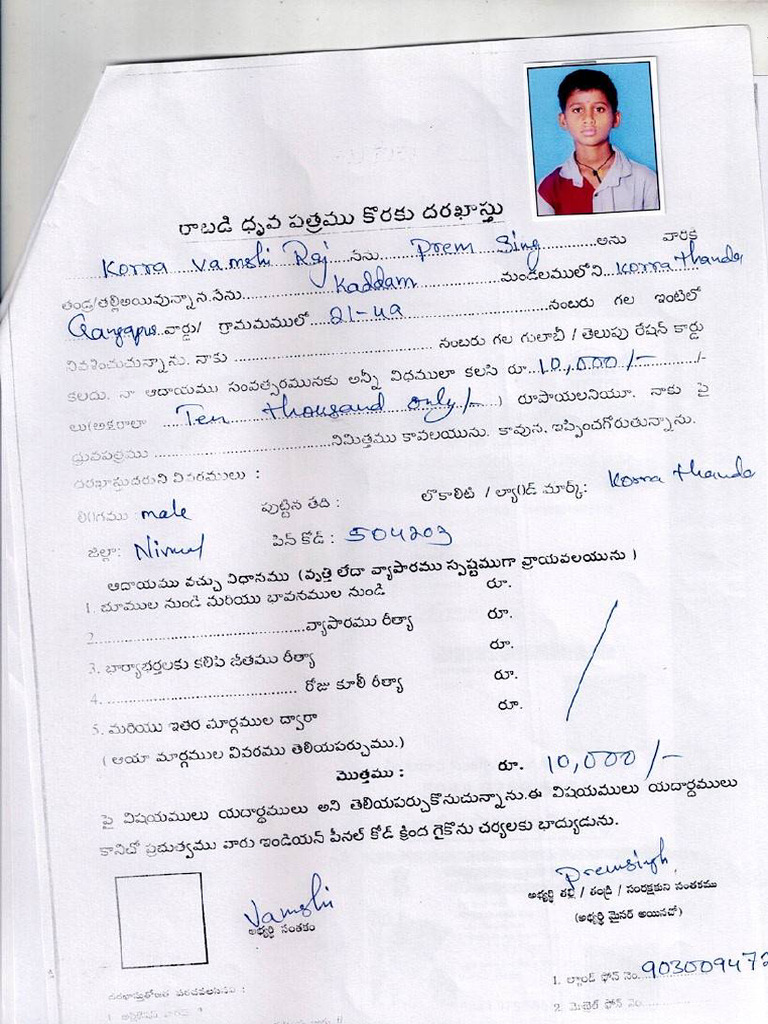 రాబడి ధృవ పత్రము కొరకు దరఖాస్తు
Korra Vamshi Raj నేను Prem Sing అను వారికి
తండ్రి/తల్లిఅయివున్నాను.నేను Kaddam మండలములోని Korra thanda
Gangapur వార్డు/ గ్రామములో 21-49 నంబరు గల ఇంటిలో
నివశించుచున్నాను. నాకు నంబరు గల గులాబీ / తెలుపు రేషన్ కార్డు
కలదు. నా ఆదాయము సంవత్సరమునకు అన్నీ విధములా కలసి రూ. 10,000/- /-
లు(అక్షరాలా Ten thousand only/- ) రూపాయలనియూ. నాకు పై
ధ్రువపత్రము నిమిత్తము కావలయును. కావున, ఇప్పించగోరుతున్నాను.
దరఖాస్తుదరుని వివరములు :
లింగము male పుట్టిన తేది : లొకాలిటి / ల్యాండ్ మార్క్: Korra thanda
జిల్లా: Nirmal పిన్ కోడ్ : 504203
ఆదాయము వచ్చు విధానము (వృత్తి లేదా వ్యాపారము స్పష్టముగా వ్రాయవలయును )
1. భూముల నుండి మరియు భావనముల నుండి రూ.
2. వ్యాపారము రీత్యా రూ.
3. భార్యాభర్తలకు కలిపి జీతము రీత్యా రూ.
4. రోజు కూలీ రీత్యా రూ.
5. మరియు ఇతర మార్గముల ద్వారా రూ.
( ఆయా మార్గముల వివరము తెలియపర్చుము.)
మొత్తము : రూ. 10,000/-
పై విషయములు యదార్ధములు అని తెలియపర్చుకొనుచున్నాను.ఈ విషయములు యదార్ధములు
కానిచో ప్రభుత్వము వారు ఇండియన్ పీనల్ కోడ్ క్రింద గైకొను చర్యలకు భాద్యుడును.
Vamshi
అభ్యర్థి సంతకం
Premsingh
అభ్యర్థి తల్లి / తండ్రి / సంరక్షకుని సంతకము
(అభ్యర్థి మైనర్ అయినచో)
1. ల్యాండ్ ఫోన్ నెం. 903009472
2. మొబైల్ ఫోన్ నెం.